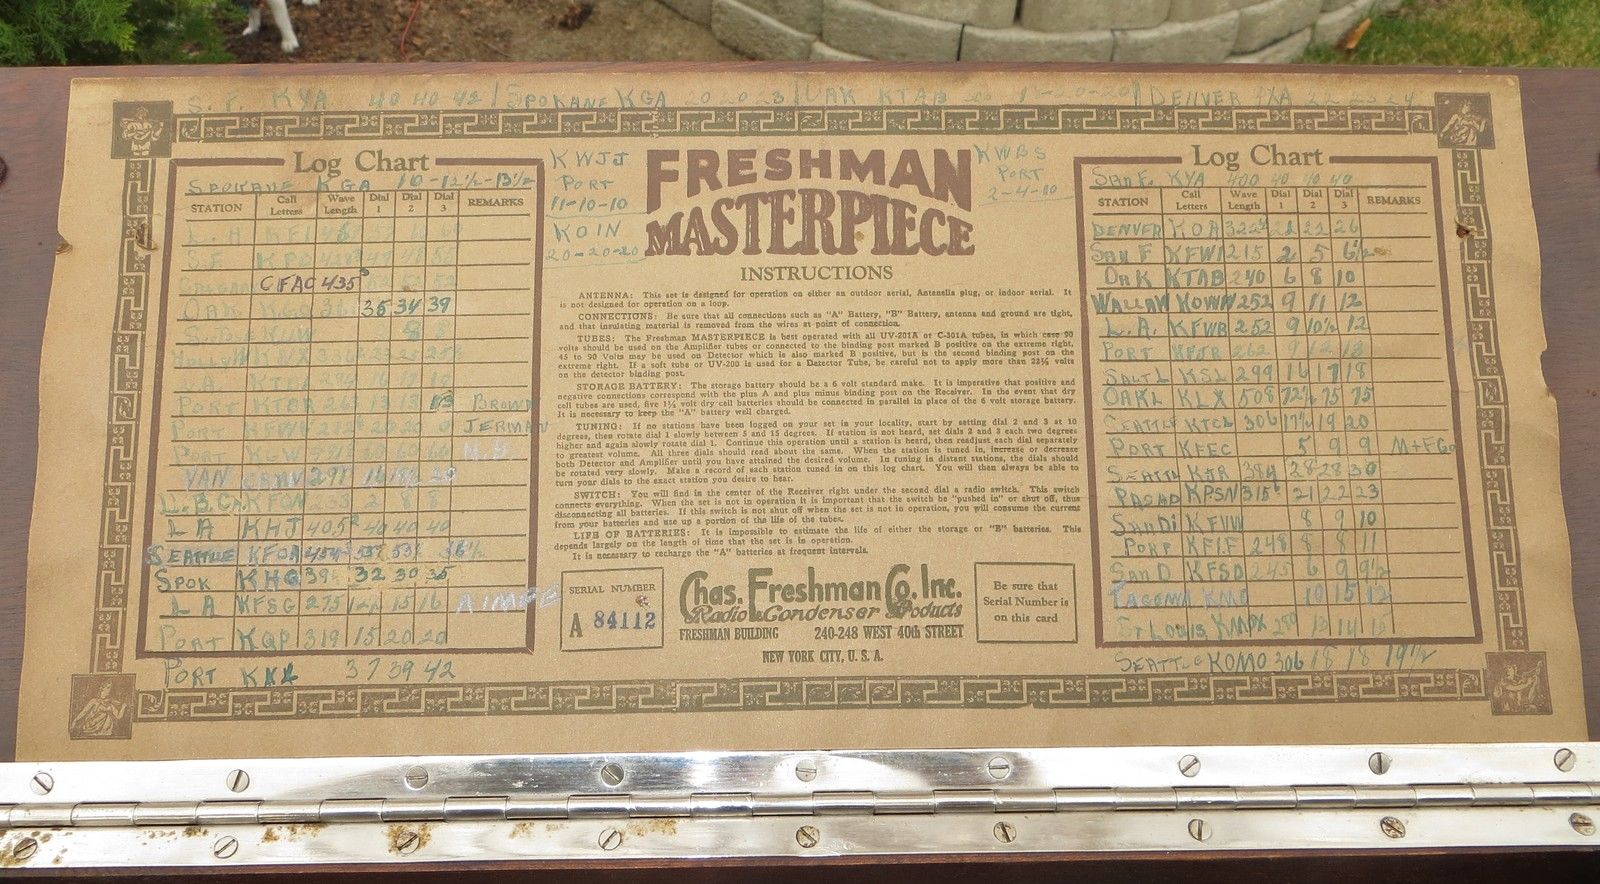 S. F. KYA 40 40 42 | SPOKANE KGA 20 20 23 | OAK KTAB 20-20 | DENVER 22 23 24
Log Chart
SPOKANE KGA 10-12½-13½
STATION Call Letters Wave Length Dial 1 Dial 2 Dial 3 REMARKS
KFI
S.F. KPO 428
CFAC 435
OAK KGO 36 34 39
8 8
KNX
L.A.
PORT 263 13 13 13 BROWN
PORT KFWV 212 20 20 JERMAN
PORT KGW 60 60
VAN 291 16 20
L.B. CA. KFON 2 8 8
L A KHJ 405² 40 40 40
SEATTLE KFOA 454
SPOK KHQ 394 32 30 35
L A KFSG 275 15 16 AIMEE
PORT KQP 319 15 20 20
PORT 37 39 42
KWJJ
PORT
11-10-10
KOIN
20-20-20
FRESHMAN
MASTERPIECE
KWBS
PORT
2-4-10
INSTRUCTIONS
ANTENNA: This set is designed for operation on either an outdoor aerial, Antenella plug, or indoor aerial. It
is not designed for operation on a loop.
CONNECTIONS: Be sure that all connections such as "A" Battery, "B" Battery, antenna and ground are tight,
and that insulating material is removed from the wires at point of connection.
TUBES: The Freshman MASTERPIECE is best operated with all UV-201A or C-301A tubes, in which case 90
volts should be used on the Amplifier tubes or connected to the binding post marked B positive on the extreme right,
45 to 90 Volts may be used on Detector which is also marked B positive, but is the second binding post on the
extreme right. If a soft tube or UV-200 is used for a Detector Tube, be careful not to apply more than 22½ volts
on the detector binding post.
STORAGE BATTERY: The storage battery should be a 6 volt standard make. It is imperative that positive and
negative connections correspond with the plus A and plus minus binding post on the Receiver. In the event that dry
cell tubes are used, five 1½ volt dry cell batteries should be connected in parallel in place of the 6 volt storage battery.
It is necessary to keep the "A" battery well charged.
TUNING: If no stations have been logged on your set in your locality, start by setting dial 2 and 3 at 10
degrees, then rotate dial 1 slowly between 5 and 15 degrees. If station is not heard, set dials 2 and 3 each two degrees
higher and again slowly rotate dial 1. Continue this operation until a station is heard, then readjust each dial separately
to greatest volume. All three dials should read about the same. When the station is tuned in, increase or decrease
both Detector and Amplifier until you have attained the desired volume. In tuning in distant stations, the dials should
be rotated very slowly. Make a record of each station tuned in on this log chart. You will then always be able to
turn your dials to the exact station you desire to hear.
SWITCH: You will find in the center of the Receiver right under the second dial a radio switch. This switch
connects everything. When the set is not in operation it is important that the switch be "pushed in" or shut off, thus
disconnecting all batteries. If this switch is not shut off when the set is not in operation, you will consume the current
from your batteries and use up a portion of the life of the tubes.
LIFE OF BATTERIES: It is impossible to estimate the life of either the storage or "B" batteries. This
depends largely on the length of time that the set is in operation.
It is necessary to recharge the "A" batteries at frequent intervals.
SERIAL NUMBER
A 84112
Chas. Freshman Co. Inc.
Radio Condenser Products
FRESHMAN BUILDING 240-248 WEST 40th STREET
NEW YORK CITY, U. S. A.
Be sure that
Serial Number is
on this card
Log Chart
SAN F. KYA 400 40 40 40
STATION Call Letters Wave Length Dial 1 Dial 2 Dial 3 REMARKS
DENVER KOA 322⁴ 22 22 26
SAN F KFWI 215 2 5 6½
OAK KTAB 240 6 8 10
WALLAW KOWW 252 9 11 12
L. A. KFWB 252 9 10½ 12
PORT KFJR 262 9 12 13
SALT L KSL 299 16 17 18
OAKL KLX 508 72½ 75 75
SEATTLE KTCL 306 17½ 19 20
PORT KFEC 5 9 9
SEATTL KJR 384 28 28 30
PASAD KPSN 315⁶ 21 22 23
SAN DI KFVW 8 9 10
PORT KFIF 248 8 8 11
SAN D KFSD 245 6 9 9½
TACOMA KMO 10 15 12
ST LOUIS KMOX 280 14
SEATTLE KOMO 306 18 18 19½